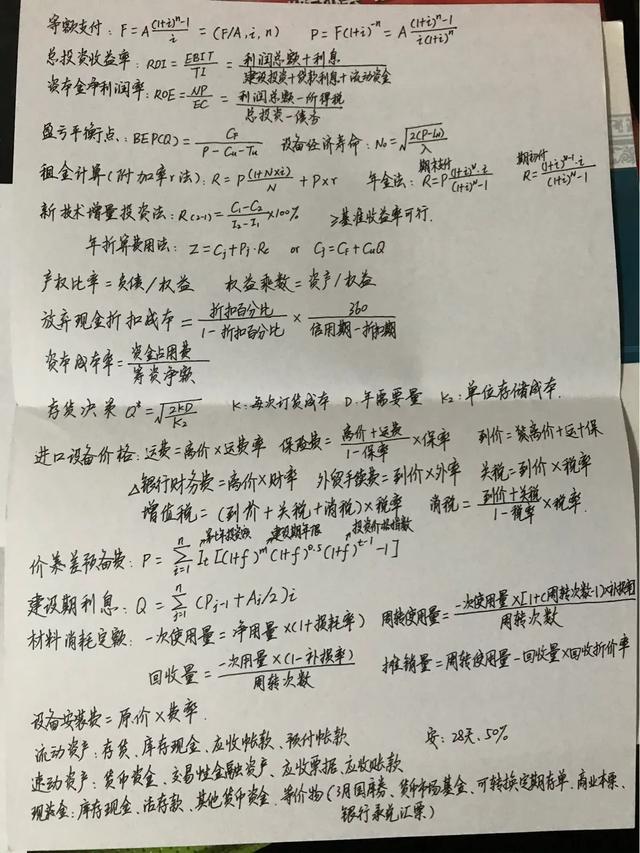 等额支付: F=A((1+i)^n-1)/i=(F/A,i,n) P=F(1+i)^-n=A((1+i)^n-1)/(i(1+i)^n)
总投资收益率: ROI=EBIT/TI=(利润总额+利息)/(建设投资+贷款利息+流动资金)
资本金净利润率: ROE=NP/EC=(利润总额-所得税)/(总投资-债务)
盈亏平衡点: BEP(Q)=CF/(P-Cu-Tu) 设备经济寿命: No=√(2(P-Ln)/λ)
租金计算(附加率r法): R=P(1+N×i)/N+P×r 年金法: 期末支付 R=P((1+i)^N·i)/((1+i)^N-1) 期初付 R=((1+i)^N-1·i)/((1+i)^N-1)
新技术增量投资法: R(2-1)=(C1-C2)/(I2-I1)×100% ≥基准收益率可行.
年折算费用法: Z=Cj+Pj·Rc or Cj=CF+CuQ
产权比率=负债/权益 权益乘数=资产/权益
放弃现金折扣成本=折扣百分比/(1-折扣百分比)×360/(信用期-折扣期)
资本成本率=资金占用费/筹资净额
存货决策 Q*=√(2KD/K2) K:每次订货成本 D:年需要量 K2:单位存储成本.
进口设备价格: 运费=离价×运费率 保险费=(离价+运费)/(1-保率)×保率 到价=装离价+运+保
△银行财务费=离价×财率 外贸手续费=到价×外率 关税=到价×税率
增值税=(到价+关税+消税)×税率 消税=(到价+关税)/(1-税率)×税率.
建设期年限 投资价格指数
价差预备费: P=∑(i=1→n) It[(1+f)^m(1+f)^0.5(1+f)^t-1-1]
建设期利息: Q=∑(j=1→n)(Pj-1+Aj/2)i
材料消耗定额: 一次使用量=净用量×(1+损耗率) 周转使用量=一次使用量×[1+(周转次数-1)×补损率]/周转次数
回收量=一次用量×(1-补损率)/周转次数 摊销量=周转使用量-回收量×回收折价率
设备安装费=原价×费率.
流动资产: 存货、库存现金、应收帐款、预付帐款 安: 28天、50%
速动资产: 货币资金、交易性金融资产、应收票据、应收账款
现金: 库存现金、活存款、其他货币资金. 等价物(3月国库券、货币市场基金、可转换定期存单、商业本票、
银行承兑汇票)